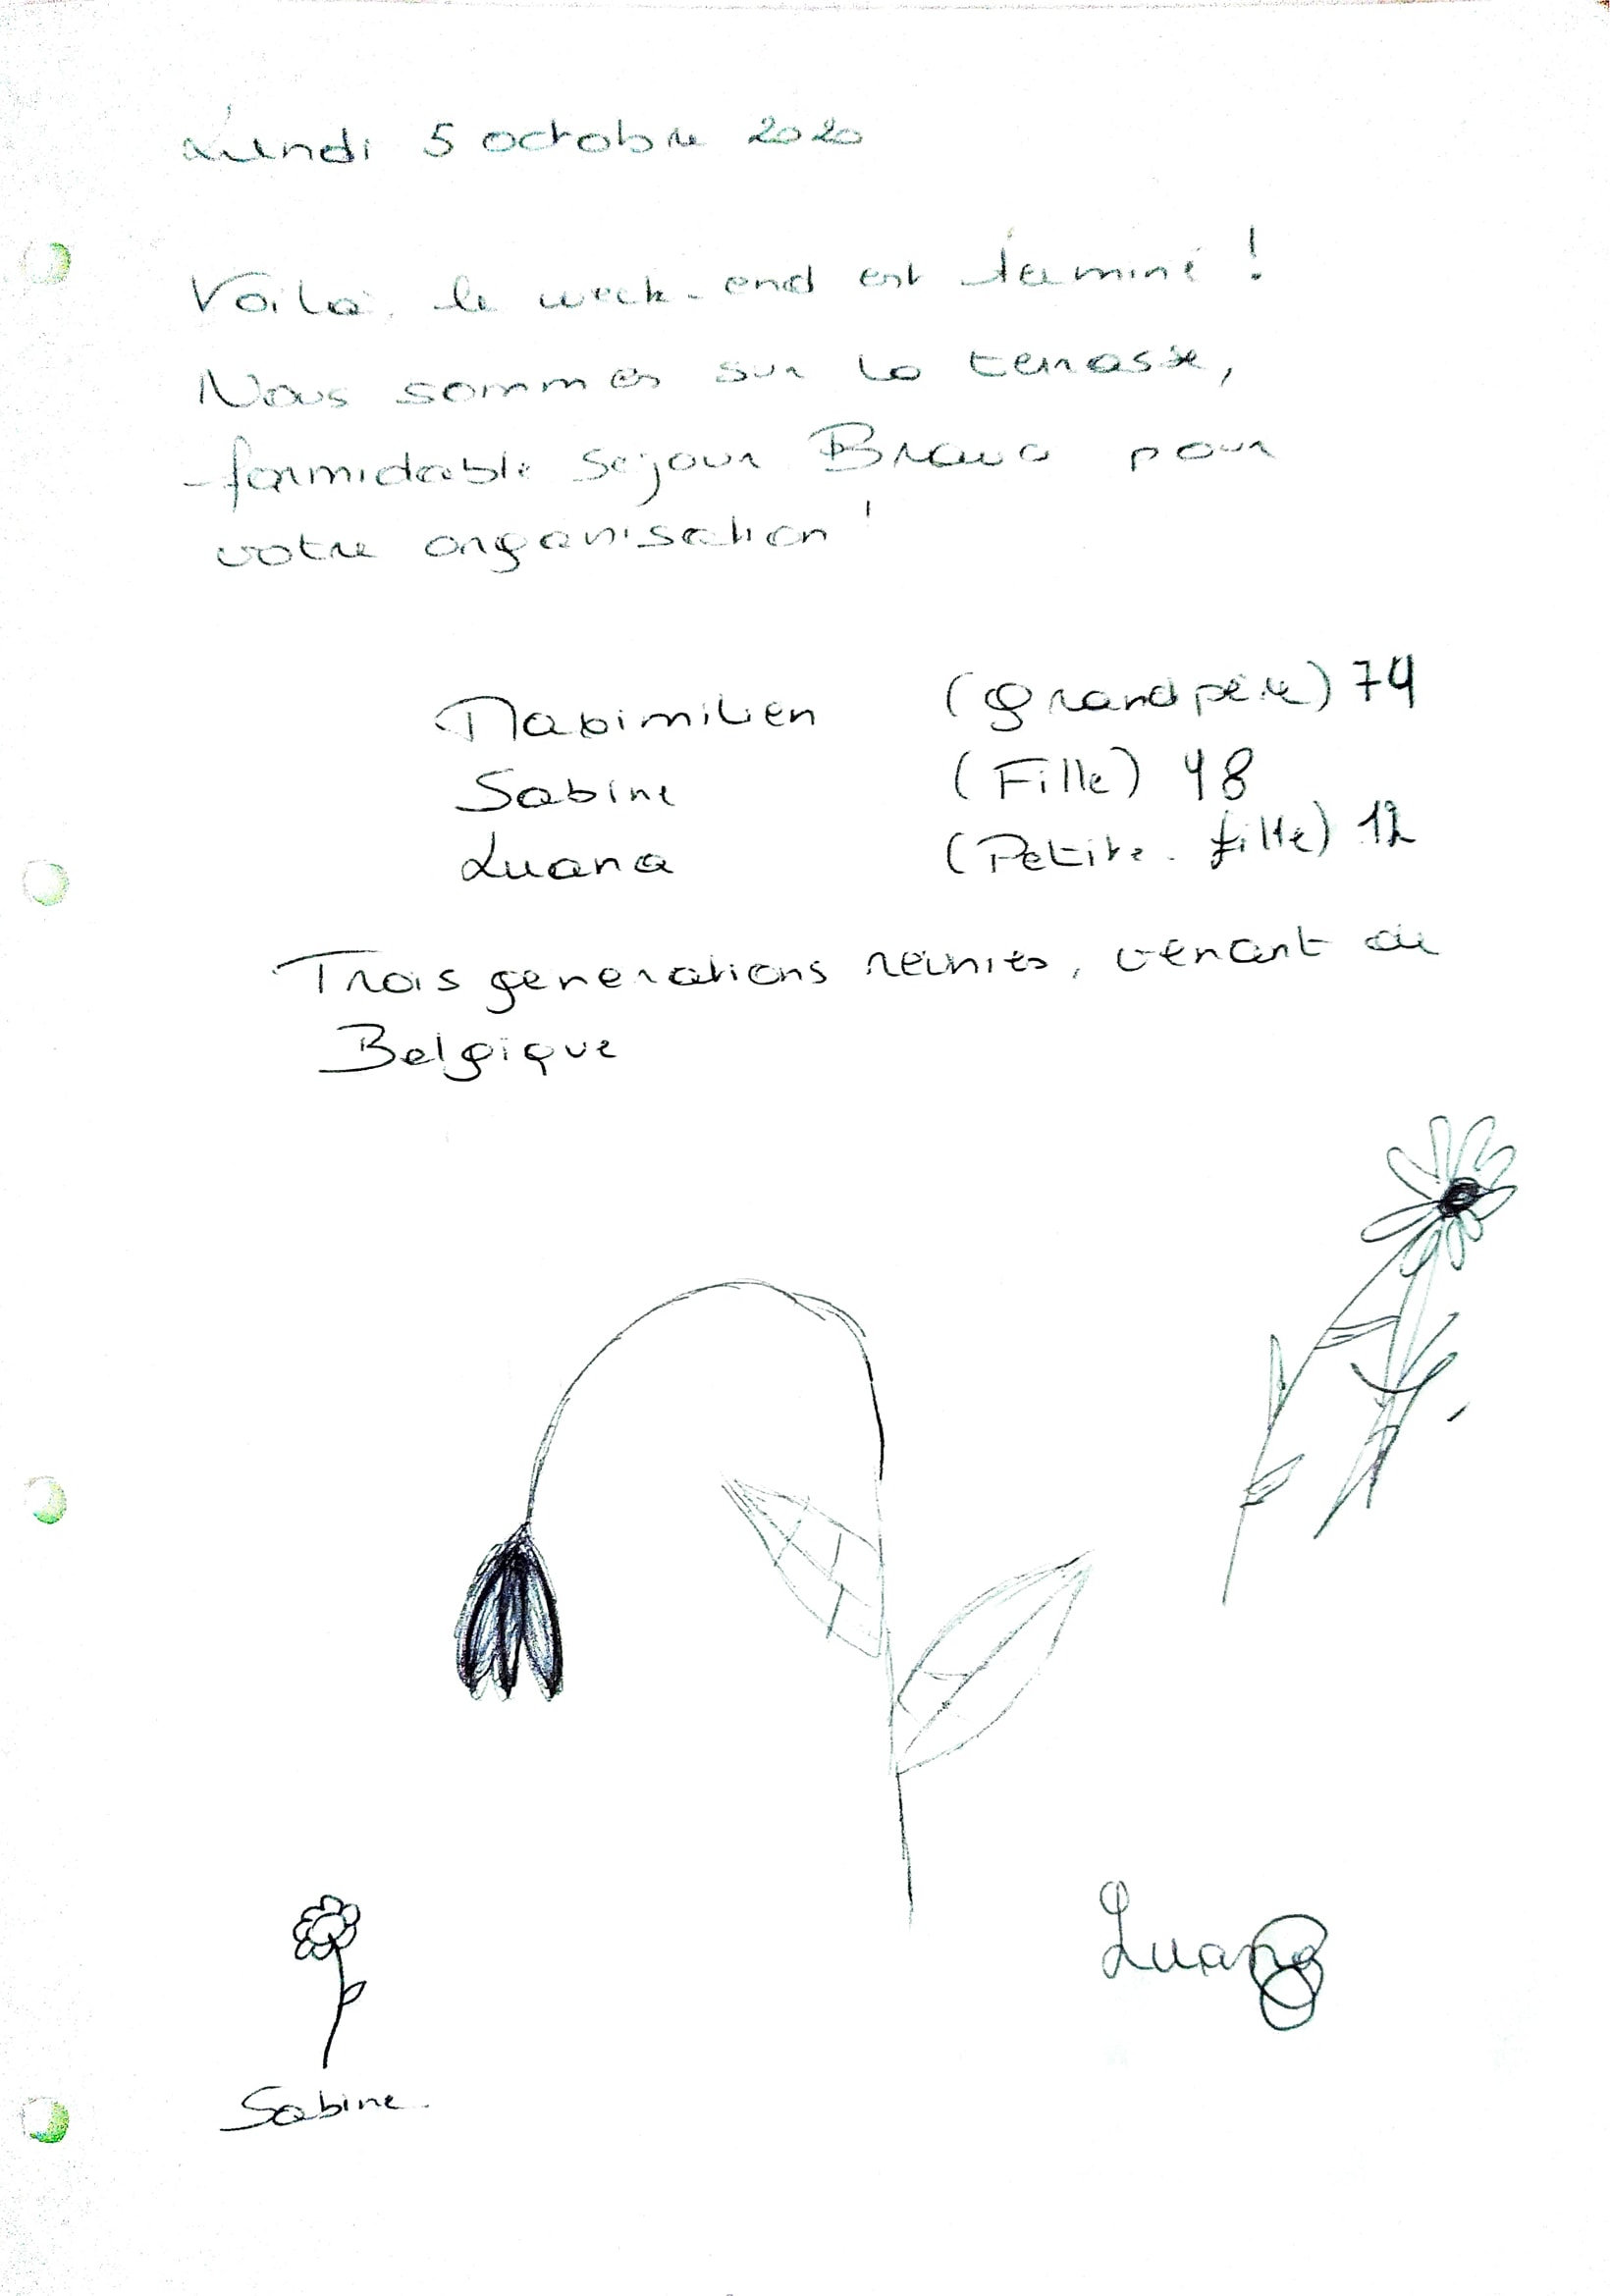 Lundi 5 octobre 2020
Voilà, le week-end est terminé !
Nous sommes sur la terrasse,
formidable séjour Bravo pour
votre organisation !
Maximilien (Grand père) 74
Sabine (Fille) 48
Luana (Petite-fille) 12
Trois generations réunies, venant de
Belgique
Luana
Sabine.